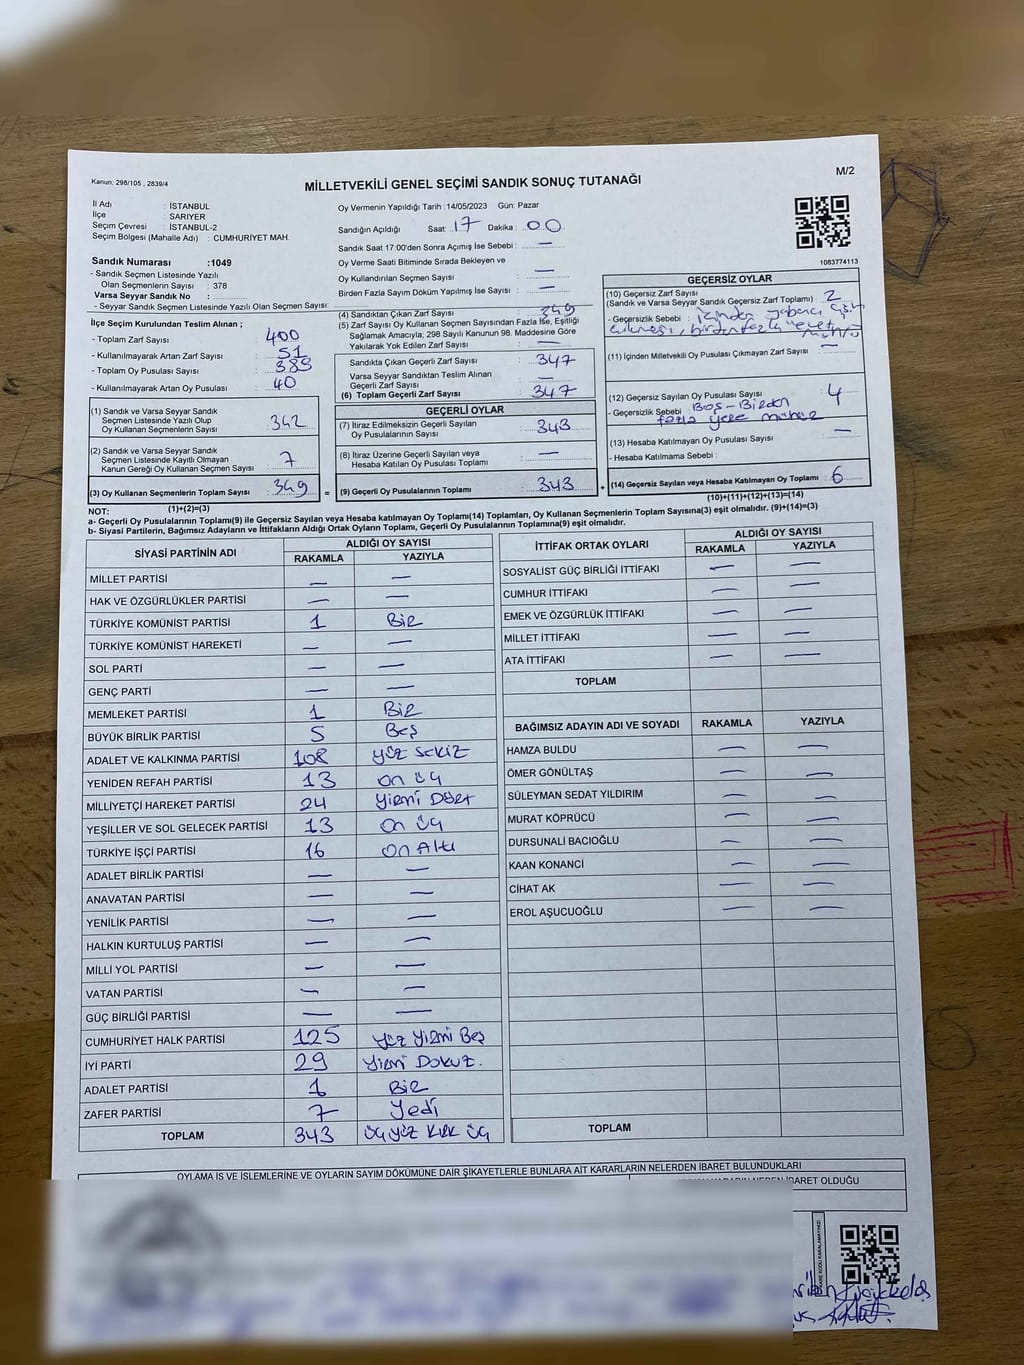 M/2
Kanun; 298/105 , 2839/4
MİLLETVEKİLİ GENEL SEÇİMİ SANDIK SONUÇ TUTANAĞI
İl Adı : İSTANBUL
İlçe : SARIYER
Seçim Çevresi : İSTANBUL-2
Seçim Bölgesi (Mahalle Adı) : CUMHURİYET MAH.
Sandık Numarası :1049
- Sandık Seçmen Listesinde Yazılı
Olan Seçmenlerin Sayısı : 378
Varsa Seyyar Sandık No :
- Seyyar Sandık Seçmen Listesinde Yazılı Olan Seçmen Sayısı:
İlçe Seçim Kurulundan Teslim Alınan ;
- Toplam Zarf Sayısı : 400
- Kullanılmayarak Artan Zarf Sayısı : 51
- Toplam Oy Pusulası Sayısı : 383
- Kullanılmayarak Artan Oy Pusulası : 40
(1) Sandık ve Varsa Seyyar Sandık
Seçmen Listesinde Yazılı Olup
Oy Kullanan Seçmenlerin Sayısı : 342
(2) Sandık ve Varsa Seyyar Sandık
Seçmen Listesinde Kayıtlı Olmayan
Kanun Gereği Oy Kullanan Seçmen Sayısı : 7
(3) Oy Kullanan Seçmenlerin Toplam Sayısı : 349
Oy Vermenin Yapıldığı Tarih :14/05/2023 Gün: Pazar
Sandığın Açıldığı Saat : 17 Dakika : 00
Sandık Saat 17:00'den Sonra Açılmış İse Sebebi : —
Oy Verme Saati Bitiminde Sırada Bekleyen ve
Oy Kullandırılan Seçmen Sayısı : —
Birden Fazla Sayım Döküm Yapılmış İse Sayısı : —
(4) Sandıktan Çıkan Zarf Sayısı : 349
(5) Zarf Sayısı Oy Kullanan Seçmen Sayısından Fazla İse, Eşitliği
Sağlamak Amacıyla, 298 Sayılı Kanunun 98. Maddesine Göre
Yakılarak Yok Edilen Zarf Sayısı : —
Sandıkta Çıkan Geçerli Zarf Sayısı : 347
Varsa Seyyar Sandıktan Teslim Alınan
Geçerli Zarf Sayısı : —
(6) Toplam Geçerli Zarf Sayısı : 347
GEÇERLİ OYLAR
(7) İtiraz Edilmeksizin Geçerli Sayılan
Oy Pusulalarının Sayısı : 343
(8) İtiraz Üzerine Geçerli Sayılan veya
Hesaba Katılan Oy Pusulası Toplamı : —
= (9) Geçerli Oy Pusulalarının Toplamı : 343
1083774113
GEÇERSİZ OYLAR
(10) Geçersiz Zarf Sayısı : 2
(Sandık ve Varsa Seyyar Sandık Geçersiz Zarf Toplamı)
- Geçersizlik Sebebi : içinden yabancı cisim
çıkması, birden fazla evet mührü
(11) İçinden Milletvekili Oy Pusulası Çıkmayan Zarf Sayısı : —
(12) Geçersiz Sayılan Oy Pusulası Sayısı : 4
- Geçersizlik Sebebi : Boş-Birden
fazla yere mühür
(13) Hesaba Katılmayan Oy Pusulası Sayısı : —
- Hesaba Katılmama Sebebi :
+ (14) Geçersiz Sayılan veya Hesaba Katılmayan Oy Toplamı : 6
NOT: (1)+(2)=(3) (10)+(11)+(12)+(13)=(14)
a- Geçerli Oy Pusulalarının Toplamı(9) ile Geçersiz Sayılan veya Hesaba katılmayan Oy Toplamı(14) Toplamları, Oy Kullanan Seçmenlerin Toplam Sayısına(3) eşit olmalıdır. (9)+(14)=(3)
b- Siyasi Partilerin, Bağımsız Adayların ve İttifakların Aldığı Ortak Oyların Toplamı, Geçerli Oy Pusulalarının Toplamına(9) eşit olmalıdır.
SİYASİ PARTİNİN ADI ALDIĞI OY SAYISI
RAKAMLA YAZIYLA
MİLLET PARTİSİ — —
HAK VE ÖZGÜRLÜKLER PARTİSİ — —
TÜRKİYE KOMÜNİST PARTİSİ 1 Bir
TÜRKİYE KOMÜNİST HAREKETİ — —
SOL PARTİ — —
GENÇ PARTİ — —
MEMLEKET PARTİSİ 1 Bir
BÜYÜK BİRLİK PARTİSİ 5 Beş
ADALET VE KALKINMA PARTİSİ 108 Yüz Sekiz
YENİDEN REFAH PARTİSİ 13 on üç
MİLLİYETÇİ HAREKET PARTİSİ 24 Yirmi Dört
YEŞİLLER VE SOL GELECEK PARTİSİ 13 on üç
TÜRKİYE İŞÇİ PARTİSİ 16 on Altı
ADALET BİRLİK PARTİSİ — —
ANAVATAN PARTİSİ — —
YENİLİK PARTİSİ — —
HALKIN KURTULUŞ PARTİSİ — —
MİLLİ YOL PARTİSİ — —
VATAN PARTİSİ — —
GÜÇ BİRLİĞİ PARTİSİ — —
CUMHURİYET HALK PARTİSİ 125 Yüz Yirmi Beş
İYİ PARTİ 29 Yirmi Dokuz.
ADALET PARTİSİ 1 Bir
ZAFER PARTİSİ 7 Yedi
TOPLAM 343 üç yüz kırk üç
İTTİFAK ORTAK OYLARI ALDIĞI OY SAYISI
RAKAMLA YAZIYLA
SOSYALİST GÜÇ BİRLİĞİ İTTİFAKI — —
CUMHUR İTTİFAKI — —
EMEK VE ÖZGÜRLÜK İTTİFAKI — —
MİLLET İTTİFAKI — —
ATA İTTİFAKI — —
TOPLAM
BAĞIMSIZ ADAYIN ADI VE SOYADI RAKAMLA YAZIYLA
HAMZA BULDU — —
ÖMER GÖNÜLTAŞ — —
SÜLEYMAN SEDAT YILDIRIM — —
MURAT KÖPRÜCÜ — —
DURSUNALİ BACIOĞLU — —
KAAN KONANCİ — —
CİHAT AK — —
EROL AŞUCUOĞLU — —
TOPLAM
OYLAMA İŞ VE İŞLEMLERİNE VE OYLARIN SAYIM DÖKÜMÜNE DAİR ŞİKAYETLERLE BUNLARA AİT KARARLARIN NELERDEN İBARET BULUNDUKLARI
İBARET OLDUĞU